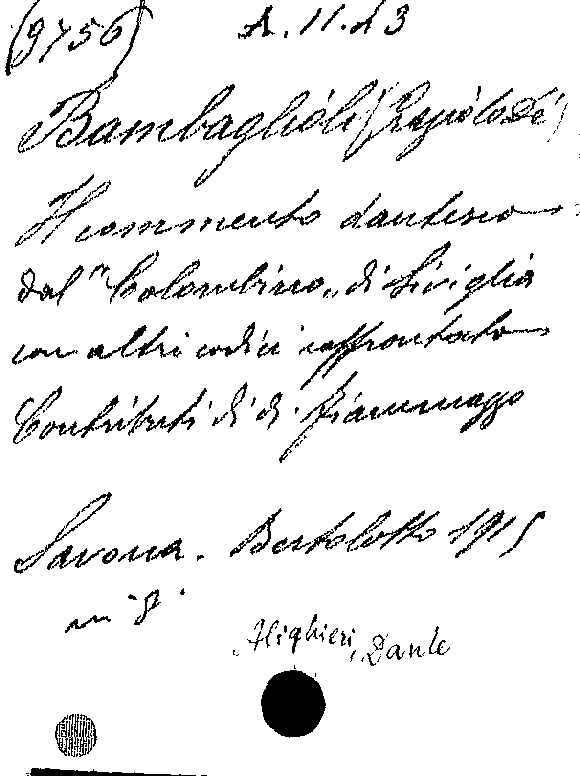 (9756) A.11.d 3
Bambaglioli (Graziolo de')
Il commento dantesco
dal "Colombino" di Siviglia
con altri codici raffrontato
Contributi di
Savona. Bertolotto 1915
in 8°.
Alighieri, Dante